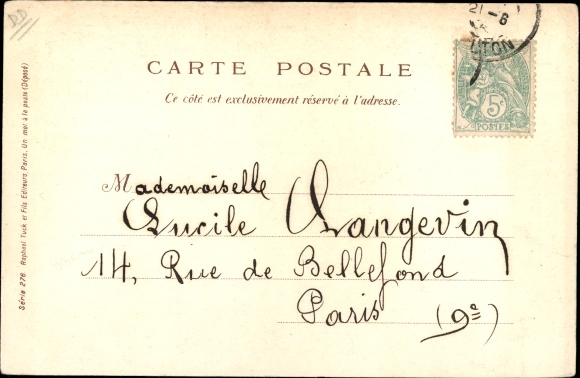 CARTE POSTALE
Ce côté est exclusivement réservé à l'adresse.
Mademoiselle
Lucile Langevin
14, Rue de Bellefond
Paris (9e)
5c
POSTES
21 - 6
Série 276 Raphael Tuck et Fils Editeurs Paris. Un mot à la poste (Déposé)